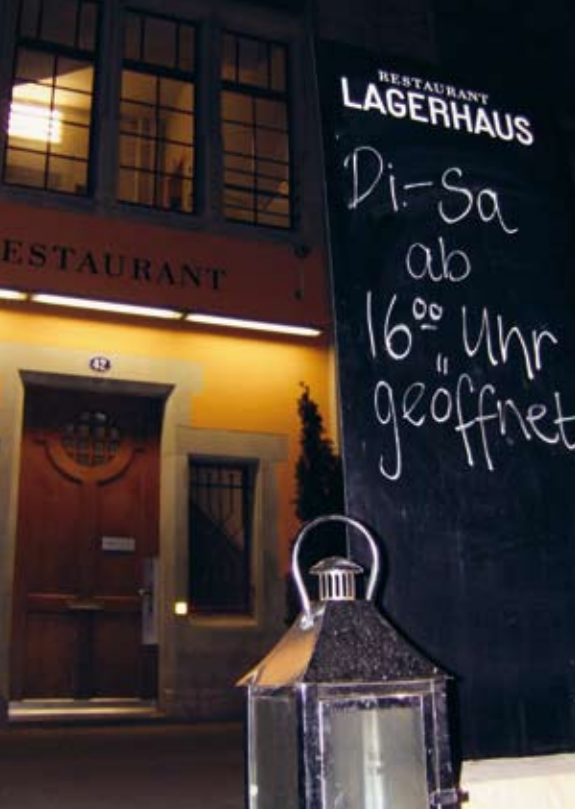 RESTAURANT
LAGERHAUS
Di.-Sa
ab
16⁰⁰ Uhr
geöffnet
ESTAURANT
42